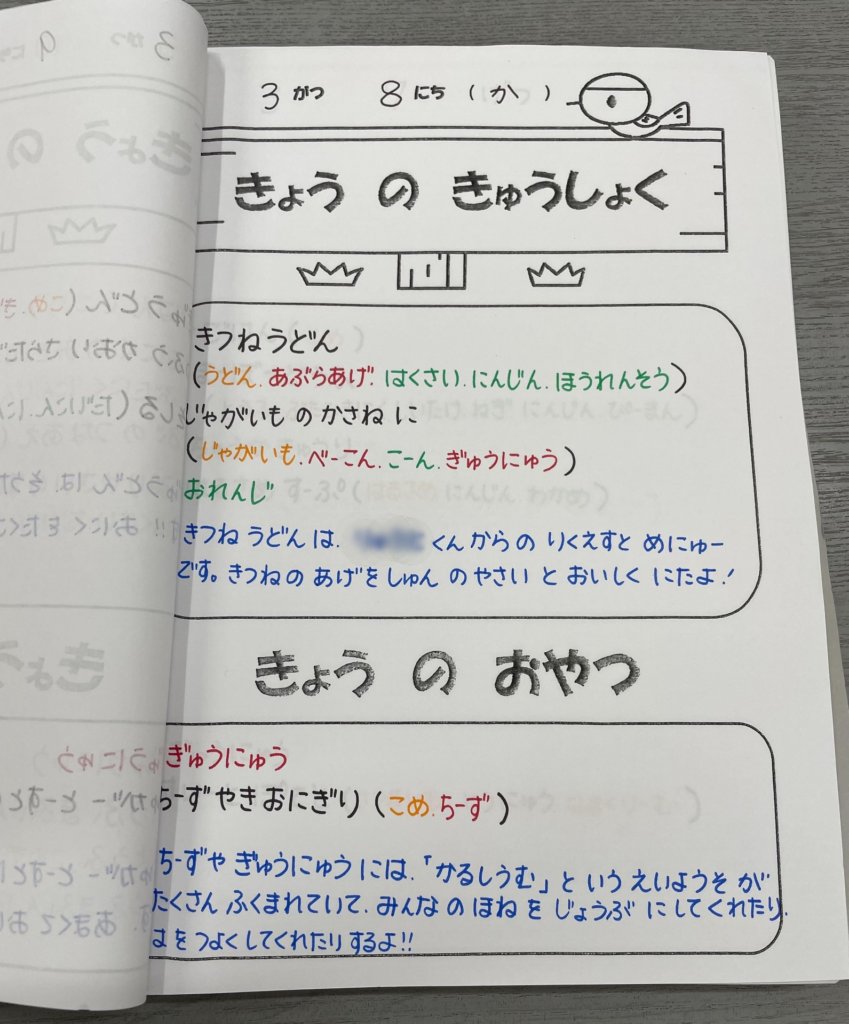 3 がつ 8 にち ( か )
きょう の きゅうしょく
きつねうどん
(うどん.あぶらあげ.はくさい.にんじん.ほうれんそう)
じゃがいも の かさね に
(じゃがいも.べーこん.こーん.ぎゅうにゅう)
おれんじ
きつね うどん は. くん から の りくえすと めにゅー
です。きつねの あげを しゅん の やさい と おいしく にたよ!
きょう の おやつ
ぎゅうにゅう
ちーず やき おにぎり (こめ.ちーず)
ちーずや ぎゅうにゅう には.「かるしうむ」と いう えいようそ が
たくさん ふくまれていて.みんな の ほね を じょうぶ に してくれたり.
はを つよく してくれたり するよ!!